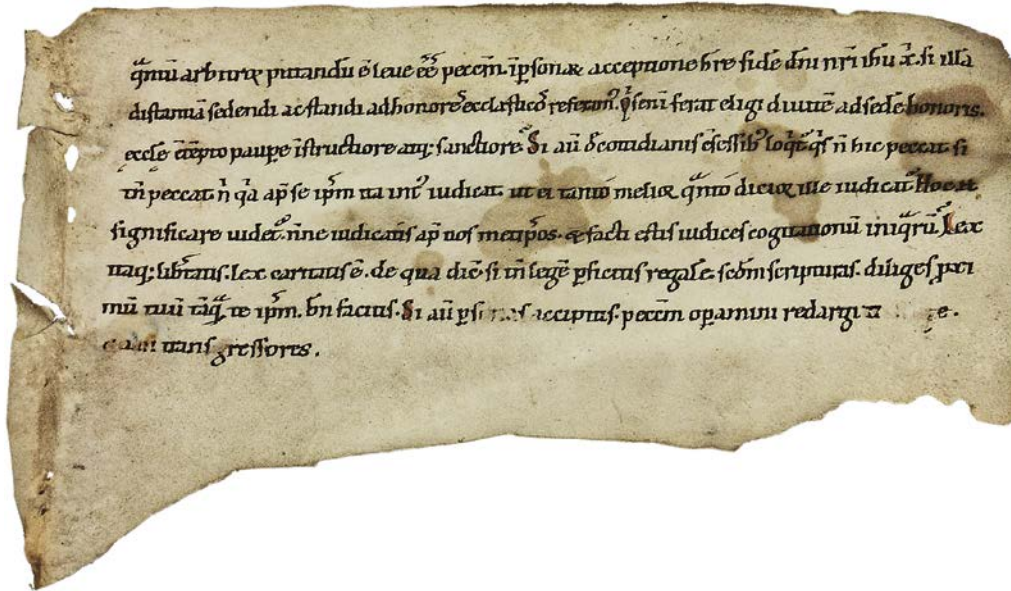 q̄ntū arbitror putandū ē leue ēē peccm̄. īpsonaꝝ acceptione hr̄e fidē dn̄i nr̄i ih̄u x̄. si illā
distantiā sedendi ac standi ad honorē ecclasticū referim᷒. q̇s enī ferat eligi diuitē ad sedē honoris.
eccl̄e ctēpto paupe īstructiore atq; sanctiore. Si aū d̄ cotidianis cs̄essib᷒ loq̇t᷒ q̇s n̄ hic peccat. si
tn̄ peccat. n̄ q̇a ap̄ se ip̄m ita int᷒ iudicat. ut ei tanto melior q̄nto dicior ille iudicat᷒. Hoc at
significare uidet᷒. n̄ne iudicatis ap̄ uos metip̄os. & facti estis iudices cogitationū iniq̄rū. Lex
itaq; lib̄tatis. lex caritatis ē. de qua dic̄. si tn̄ legē pficitis regalē. scdm̄ scripturas. diliges pxi
mū tuū tāq̄ te ip̄m. bn̄ facitis. Si aū psonas accipitis. peccm̄ opamini redarguti
transgressores.